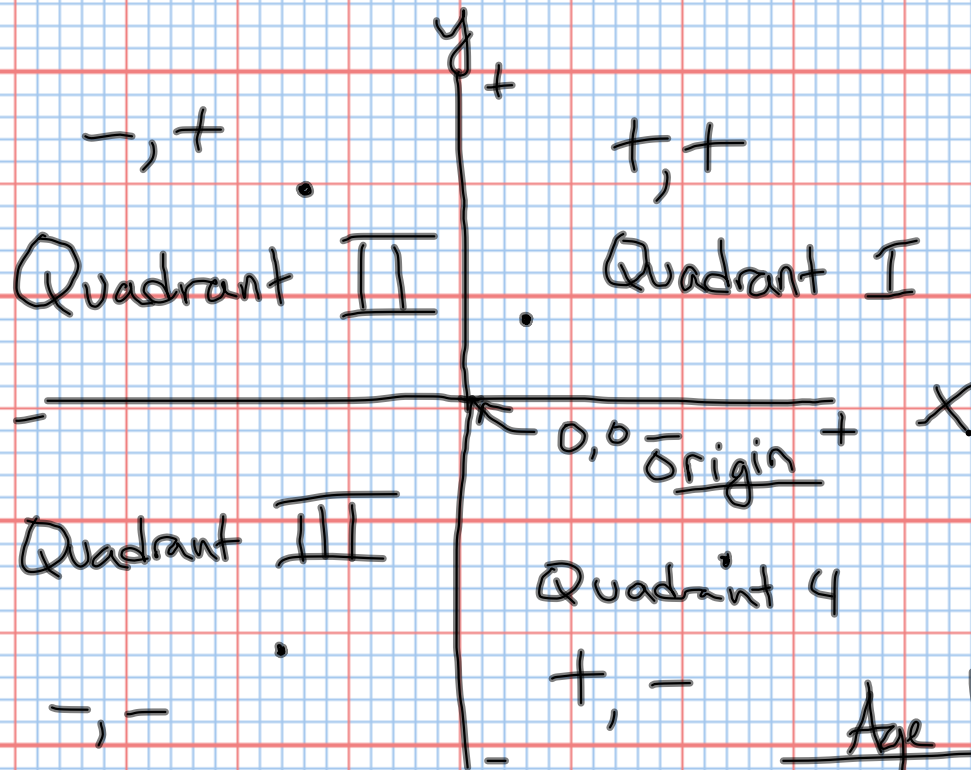 y
+
-,+
+,+
Quadrant II
Quadrant I
-
0,0 - origin
+
X
Quadrant III
Quadrint 4
+,-
-,-
-
Age